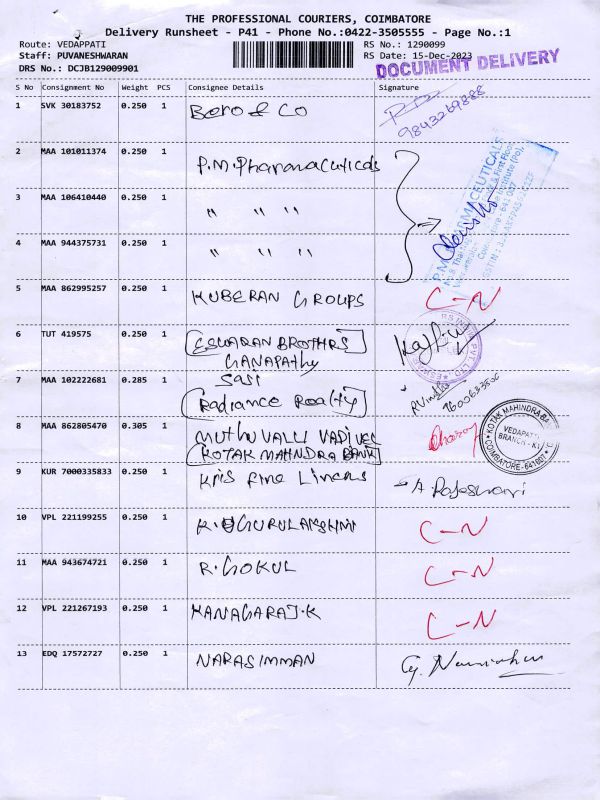 THE PROFESSIONAL COURIERS, COIMBATORE
Delivery Runsheet - P41 - Phone No.:0422-3505555 - Page No.:1
Route: VEDAPPATI RS No.: 1290099
Staff: PUVANESHWARAN RS Date: 15-Dec-2023
DRS No.: DCJB129009901
DOCUMENT DELIVERY
S No Consignment No Weight PCS Consignee Details Signature
1 SVK 30183752 0.250 1 Boro & Co
9843269888
2 MAA 101011374 0.250 1 P.M. Pharmaceuticals
3 MAA 106410440 0.250 1 " " "
4 MAA 944375731 0.250 1 " " "
P.M. PHARMACEUTICALS
5 MAA 862995257 0.250 1 KUBERAN GROUPS C-N
6 TUT 419575 0.250 1 ESWARAN BROTHRS
GANAPATHY
7 MAA 102222681 0.285 1 Sasi
Radiance Realty
8 MAA 862805470 0.305 1 MUTHU VALLI VADIVEL
KOTAK MAHINDRA BANK
KOTAK MAHINDRA BA
VEDAPATTI
BRANCH
COIMBATORE - 641007
9 KUR 7000335833 0.250 1 Kris Fine Linens A. Rajeswari
10 VPL 221199255 0.250 1 K. GURULAKSHMI C-N
11 MAA 943674721 0.250 1 R. GOKUL C-N
12 VPL 221267193 0.250 1 KANAGARAJ.K C-N
13 EDQ 17572727 0.250 1 NARASIMMAN